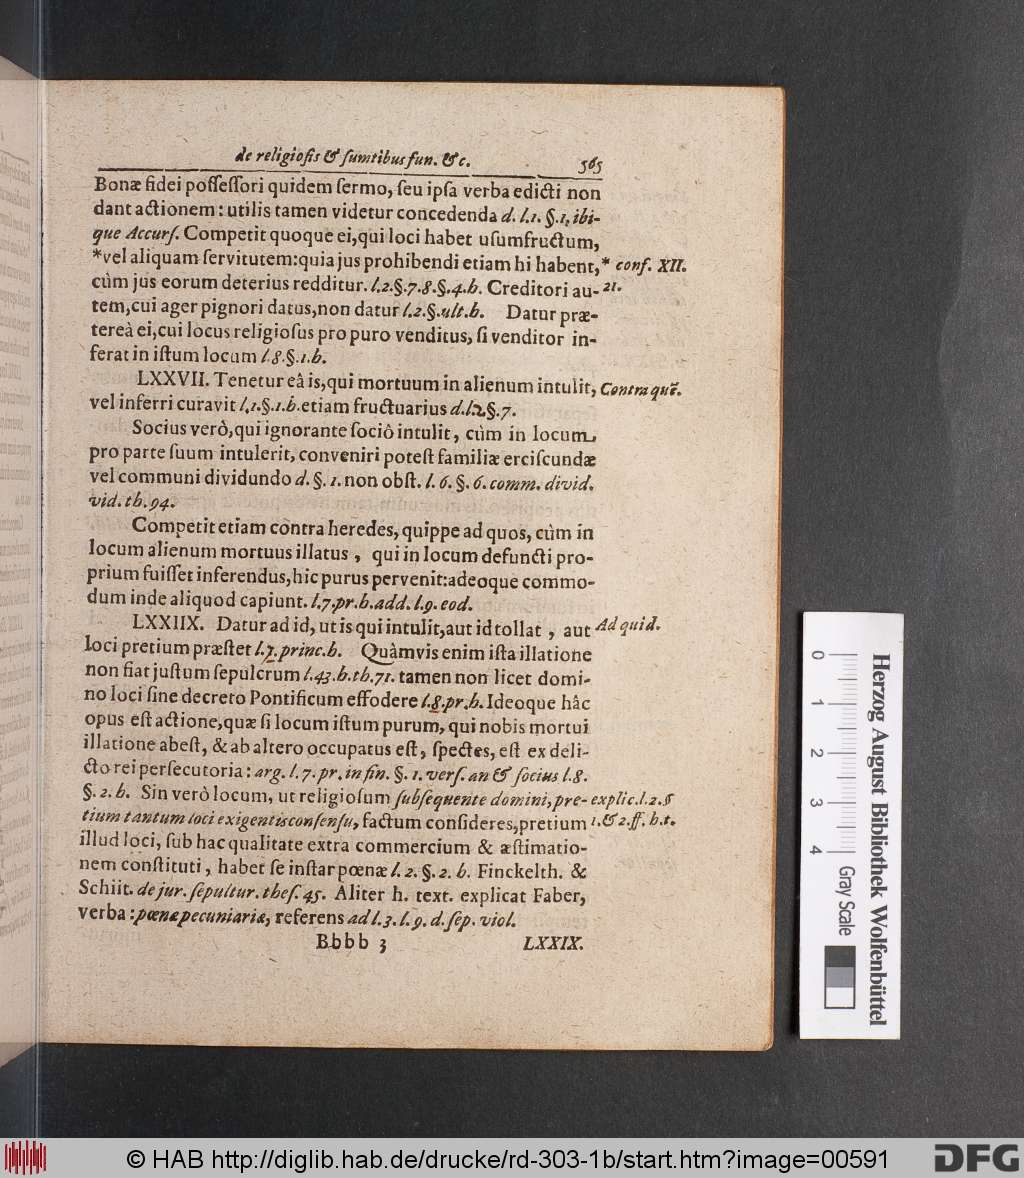 de religiosis & ſumtibus fun. &c. 565
Bonæ fidei poſſeſſori quidem ſermo, ſeu ipſa verba edicti non
dant actionem: utilis tamen videtur concedenda d. l.1. §.1. ibi-
que Accurſ. Competit quoque ei, qui loci habet uſumfructum,
*vel aliquam ſervitutem: quia jus prohibendi etiam hi habent, * conſ. XII.
cùm jus eorum deterius redditur. l.2.§.7.8.§.4.h. Creditori au- 21.
tem, cui ager pignori datus, non datur l.2.§.ult.h. Datur præ-
tereà ei, cui locus religioſus pro puro venditus, ſi venditor in-
ferat in iſtum locum l.8.§.1.h.
LXXVII. Tenetur eâ is, qui mortuum in alienum intulit, Contra quẽ.
vel inferri curavit l.1.§.1.h. etiam fructuarius d.l.2.§.7.
Socius verò, qui ignorante ſociô intulit, cùm in locum
pro parte ſuum intulerit, conveniri poteſt familiæ erciſcundæ
vel communi dividundo d. §. 1. non obſt. l. 6. §. 6. comm. divid.
vid. th. 94.
Competit etiam contra heredes, quippe ad quos, cùm in
locum alienum mortuus illatus, qui in locum defuncti pro-
prium fuiſſet inferendus, hic purus pervenit: adeoque commo-
dum inde aliquod capiunt. l.7.pr.h. add. l.9. eod.
LXXIIX. Datur ad id, ut is qui intulit, aut id tollat, aut Ad quid.
loci pretium præſtet l.7.princ.h. Quàmvis enim iſta illatione
non fiat juſtum ſepulcrum l.43.h.th.71. tamen non licet domi-
no loci ſine decreto Pontificum effodere l.8.pr.h. Ideoque hâc
opus eſt actione, quæ ſi locum iſtum purum, qui nobis mortui
illatione abeſt, & ab altero occupatus eſt, ſpectes, eſt ex deli-
cto rei perſecutoria: arg. l.7. pr. in fin. §. 1. verſ. an & ſocius l.8.
§. 2. h. Sin verò locum, ut religioſum ſubſequente domini, pre- explic.l.2.§
tium tantum loci exigentis conſenſu, factum conſideres, pretium 1.&2.ff. h.t.
illud loci, ſub hac qualitate extra commercium & æſtimatio-
nem conſtituti, habet ſe inſtar pœnæ l. 2. §. 2. h. Finckelth. &
Schiit. de jur. ſepultur. theſ. 45. Aliter h. text. explicat Faber,
verba: pœnæ pecuniariæ, referens ad l.3. l.9. d. ſep. viol.
Bbbb 3 LXXIX.
Herzog August Bibliothek Wolfenbüttel
0 1 2 3 4 Gray Scale
© HAB http://diglib.hab.de/drucke/rd-303-1b/start.htm?image=00591
DFG